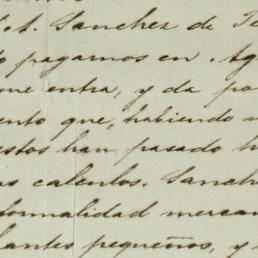 A. Sanchez de Te
pagarnos en Ag
que entra, y da po
ento que, habiendo
estos han pasado h
as calculos. Sanch
formalidad mercan
antes pequeños, y